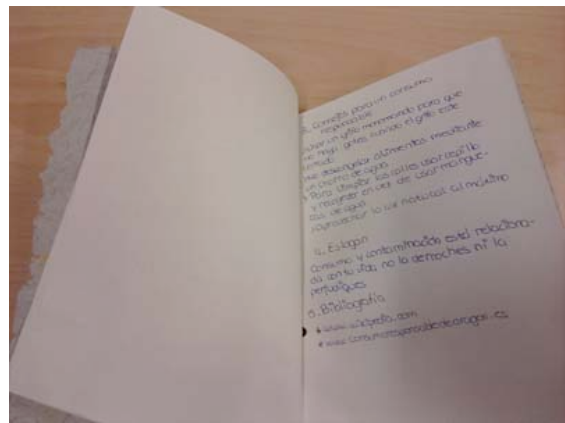 3. Consejos para un consumo
responsable
Usar un grifo monomando para que
no haya goteo cuando el grifo este
cerrado
descongelar alimentos mediante
un chorro de agua
Para limpiar las calles usar cepillo
y recogedor en vez de usar mangue-
ras de agua
Aprovechar la luz natural al máximo
4. Eslogan
Consumo y contaminación está relaciona-
da con tu vida no la derroches ni la
perjudiques
5. Bibliografía
www.wikipedia.com
www.consumoresponsabledearagon.es